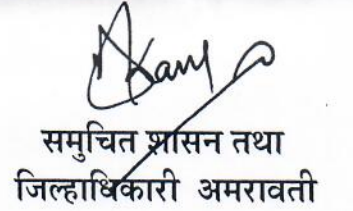 समुचित शासन तथा
जिल्हाधिकारी अमरावती